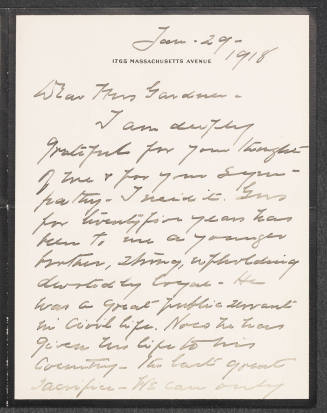 Jan - 29 -
1918
1765 MASSACHUSETTS AVENUE
Dear Mrs Gardner -
I am deeply
grateful for your thought
of me & for your sym-
pathy - I need it. Gus
for twenty five years has
been to me a younger
brother, strong, upholding
devotedly loyal - He
was a great public servant
in civil life. Now he has
given his life to his
Country - the last great
sacrifice - We can only